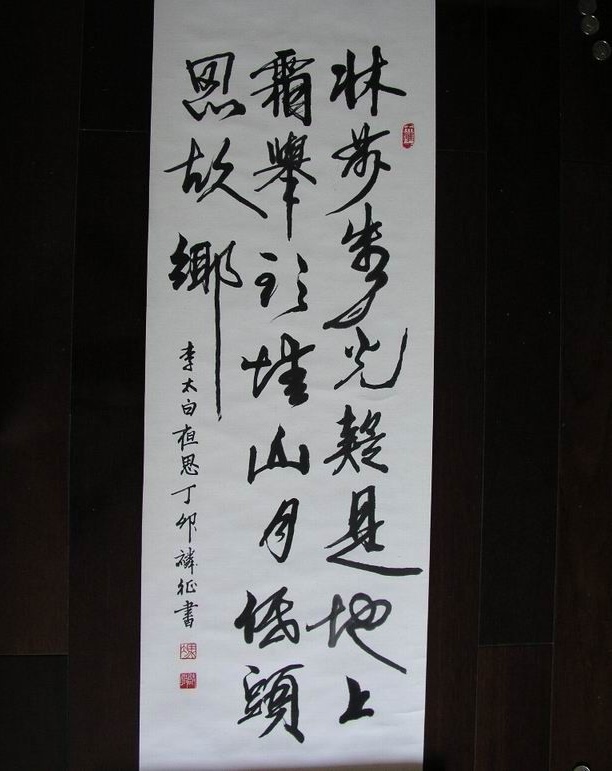 牀前看月光疑是地上
霜舉頭望山月低頭
思故鄉
李太白夜思丁卯麟征書